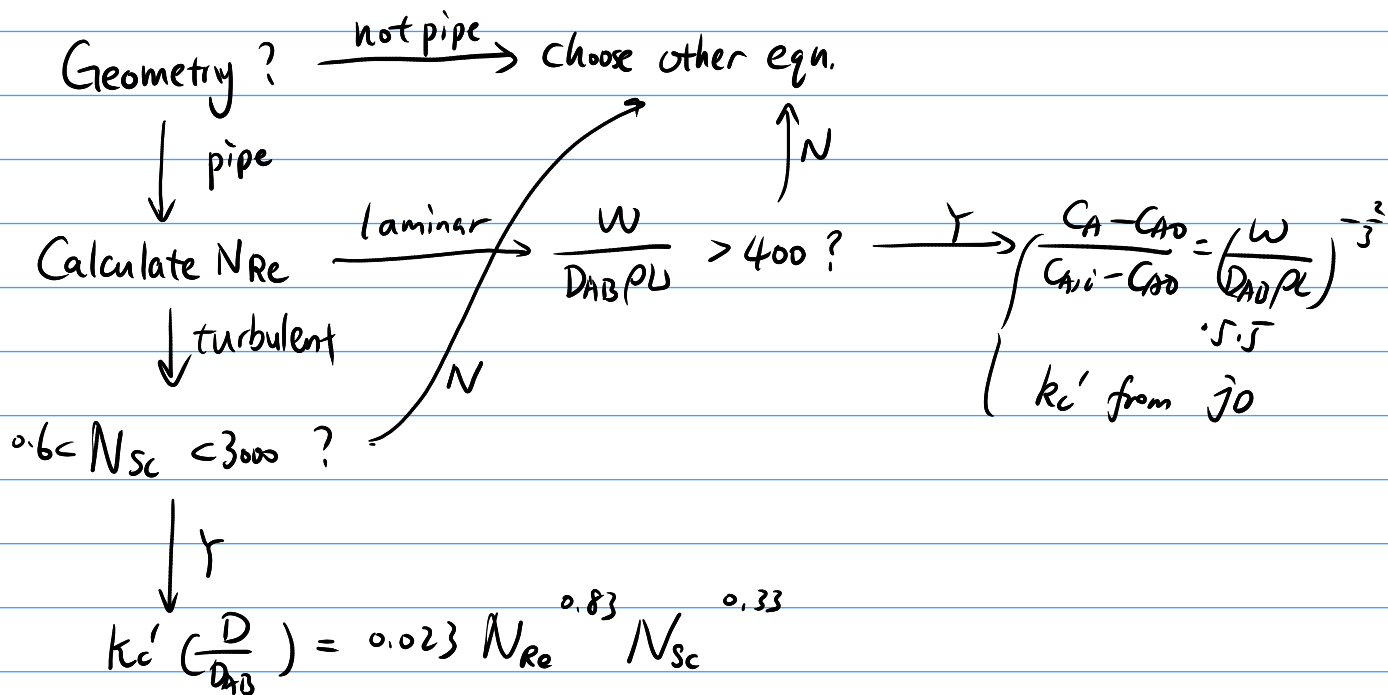 Geometry ? not pipe choose other eqn.
pipe N
Calculate N_Re laminar W/(D_AB ρL) > 400 ? Y (C_A - C_A0)/(C_A,i - C_A0) = (W/(D_AB ρL))^(-2/3)
· 5.5
turbulent N kc' from j_D
0.6 < N_Sc < 3000 ?
Y
kc' (D/D_AB) = 0.023 N_Re^0.83 N_Sc^0.33